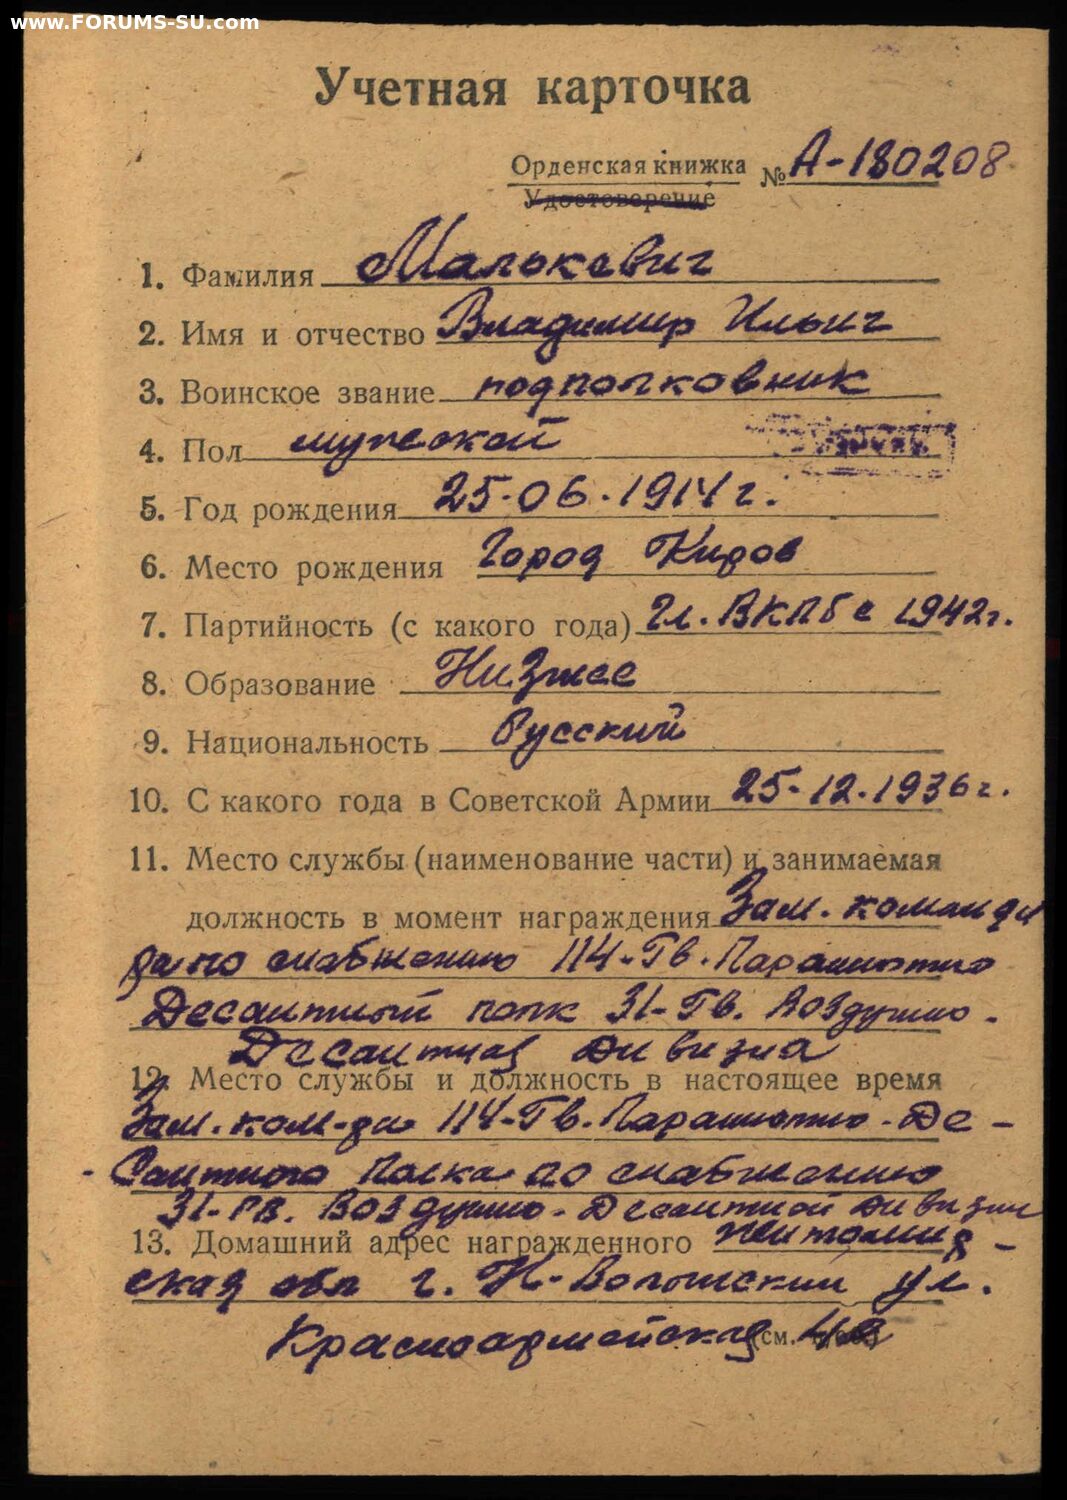 www.FORUMS-SU.com
Учетная карточка
Орденская книжка № А-180208
Удостоверение
1. Фамилия Малькевич
2. Имя и отчество Владимир Ильич
3. Воинское звание подполковник
4. Пол мужской
5. Год рождения 25-06.1914 г.
6. Место рождения Город Киров
7. Партийность (с какого года) Чл. ВКПб с 1942 г.
8. Образование Низшее
9. Национальность Русский
10. С какого года в Советской Армии 25-12.1936 г.
11. Место службы (наименование части) и занимаемая
должность в момент награждения Зам. команди
ра по снабжению 114-Гв. Парашютно
Десантный полк 31-Гв. Воздушно-
Десантная дивизия
12. Место службы и должность в настоящее время
Зам. ком-ра 114-Гв. Парашютно-Де-
-сантного полка по снабжению
31-Гв. Воздушно-Десантной дивизии
13. Домашний адрес награжденного Житомир-
ская обл г. Н-Волынский ул.
Красноармейская (см.